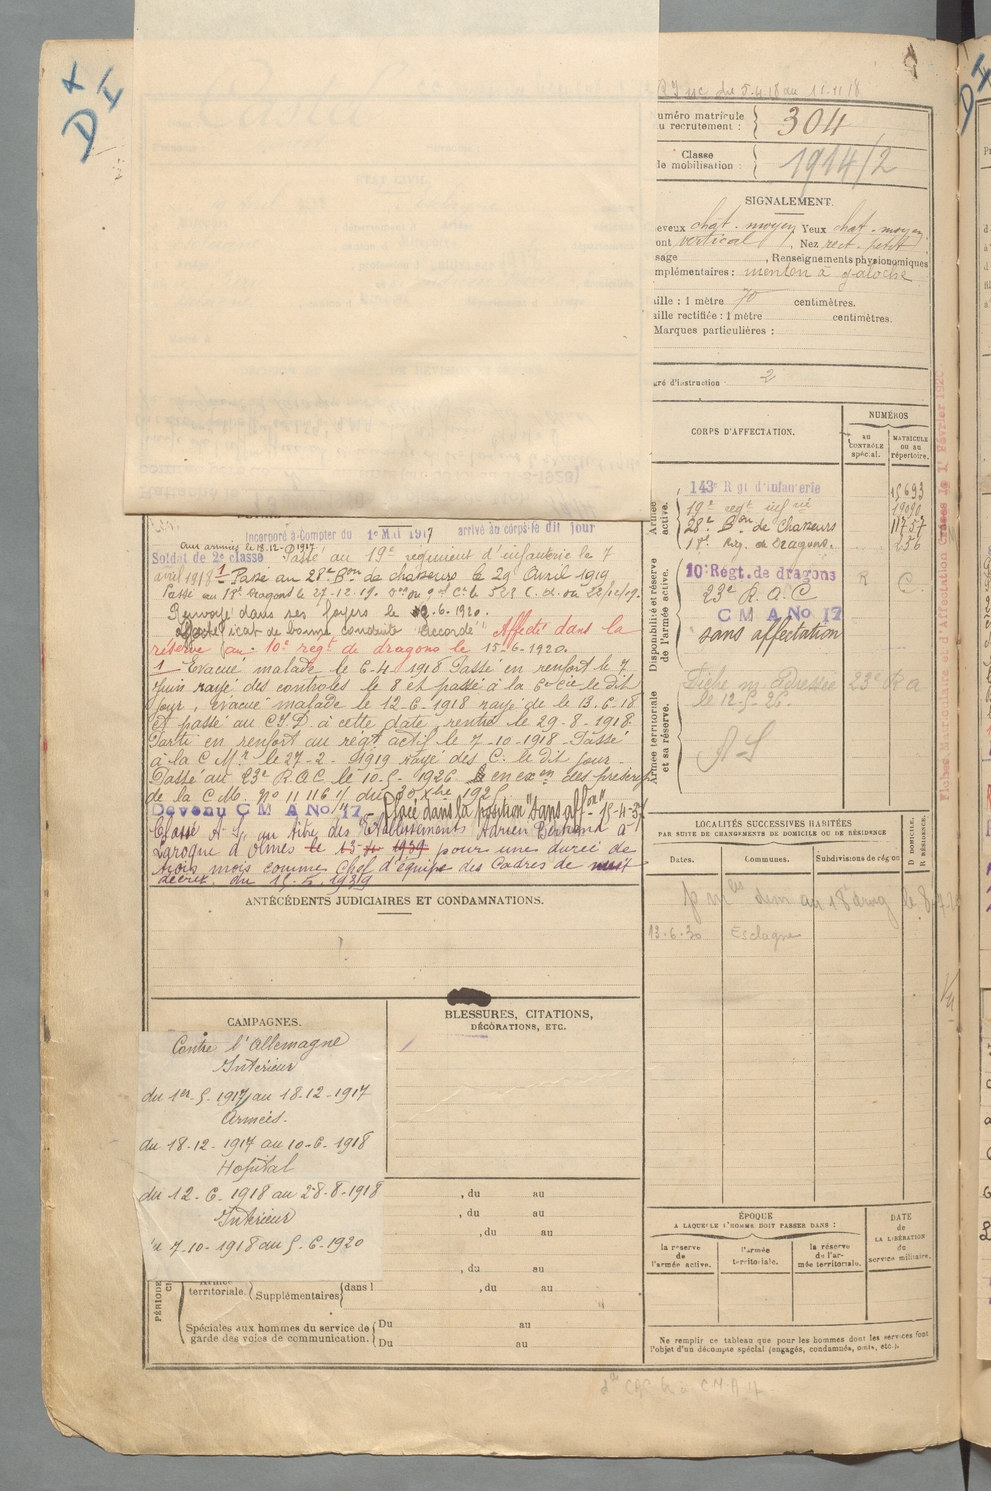 D I
du 5-4-18 au 11-11/8
numéro matricule
du recrutement : 304
Classe
de mobilisation : 1914/2
SIGNALEMENT.
cheveux chât. moyen, Yeux chat-moyen
ont vertical, Nez rect. petit
sage , Renseignements physionomiques
mplémentaires : menton à galoche
aille : 1 mètre 70 centimètres.
aille rectifiée : 1 mètre centimètres.
Marques particulières :
gré d'instruction 2
CORPS D'AFFECTATION.
NUMÉROS
au CONTRÔLE spécial.
MATRICULE ou au répertoire.
Armée active.
143e Rgt d'Infanterie 15693
19e regt infrie 19090
28e Bon de Chasseurs 11757
18e Rég. de Dragons. 256
Disponibilité et réserve de l'armée active.
10e Régt. de dragons R C.
23e R.A.C
C M A No 17
sans affectation
Armée territoriale et sa réserve.
Fiche m. Adressée 23e R a
le 12-5-26.
A S
Incorporé à Compter du 1er Mai 1917 arrivé au corps le dit jour
Aux armées le 18-12-1917
Soldat de 2e classe Passé au 19e régiment d'infanterie le 7
avril 1918 1 Passé au 28e Bon de chasseurs le 29 Avril 1919
Passé au 18e Dragons le 27-12-19.
Renvoyé dans ses foyers le 12.6.1920.
Certificat de bonne conduite "Accordé" Affecté dans la
réserve au 10e régt de dragons le 15-6-1920.
1 Evacué malade le 6-4-1918 Passé en renfort le 7
juin rayé des controles le 8 et passé à la 6e Cie le dit
jour, évacué malade le 12-6-1918 rayé de le 13-6-18
et passé au C.I.D. à cette date, rentré le 29-8-1918.
Parti en renfort au régt actif le 7-10-1918 Passé
à la C Mr le 27-2-1919 rayé des C. le dit jour
Passé au 23e R.A.C. le 10-5-1926 en exon des prescrip.
de la C.M. no 11116 1/7 du 30 Xbre 1925
Devenu C M A No 17 Placé dans la position "Sans affon" 15-4-37
Classé A.S. au titre des Etablissements Adrien Bertrand à
Laroque d'Olmes le 15-4-1939 pour une durée de
trois mois comme Chef d'équipe des Cadres de nuit
décret du 15-5-1939
Fiches Matriculaire et d'Affectation Créées le 1er Février 1926
ANTÉCÉDENTS JUDICIAIRES ET CONDAMNATIONS.
LOCALITÉS SUCCESSIVES HABITÉES
PAR SUITE DE CHANGEMENTS DE DOMICILE OU DE RÉSIDENCE.
Dates. Communes. Subdivisions de région
D DOMICILE. R RÉSIDENCE.
au 18e drag le
13-6-30 Esclagne
CAMPAGNES.
Contre l'Allemagne
Intérieur
du 1er-5-1917 au 18-12-1917
Armées.
du 18-12-1917 au 10-6-1918
Hopital
du 12-6-1918 au 28-8-1918
Intérieur
7-10-1918 au 5-6-1920
BLESSURES, CITATIONS,
DÉCORATIONS, ETC.
, du au
, du au
, du au
, du au
Armée territoriale. Supplémentaires dans l , du au
Spéciales aux hommes du service de garde des voies de communication. Du au
Du au
ÉPOQUE
A LAQUELLE L'HOMME DOIT PASSER DANS :
la réserve de l'armée active.
l'armée territoriale.
la réserve de l'armée territoriale.
DATE de LA LIBÉRATION du service militaire.
Ne remplir ce tableau que pour les hommes dont les services font
l'objet d'un décompte spécial (engagés, condamnés, omis, etc.).